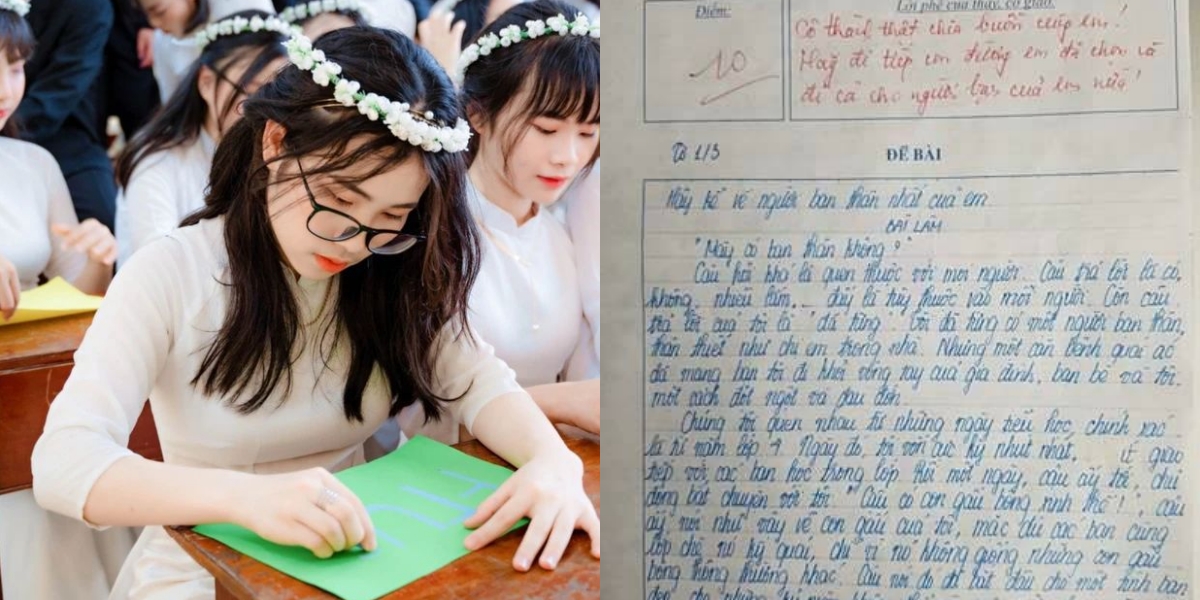 Điểm:
Lời phê của thầy, cô giáo.
10
Cô thành thật chia buồn cùng em!
Hãy đi tiếp con đường em đã chọn và
đi cả cho người bạn của em nữa!
ĐỀ BÀI
Hãy kể về người bạn thân nhất của em
BÀI LÀM
"Mày có bạn thân không?"
Câu hỏi khá là quen thuộc với mọi người. Câu trả lời là có,
không, nhiều lắm,... đấy là tùy thuộc vào mỗi người. Còn câu
trả lời của tôi là "đã từng". Tôi đã từng có một người bạn thân,
thân thiết như chị em trong nhà. Nhưng một căn bệnh quái ác
đã mang bạn tôi đi khỏi vòng tay của gia đình, bạn bè và tôi
một cách đột ngột và đau đớn.
Chúng tôi quen nhau từ những ngày tiểu học, chính xác
là từ năm lớp 4. Ngày đó, tôi vốn cực kỳ nhút nhát, ít giao
tiếp với các bạn học trong lớp. Rồi một ngày, cậu ấy tới, chủ
động bắt chuyện với tôi: "Cậu có con gấu bông xinh thế!", cậu
ấy nói như vậy về con gấu của tôi, mặc dù các bạn cùng
lớp chê nó kỳ quái, chỉ vì nó không giống những con gấu
bông thông thường khác. Câu nói đó đã bắt đầu cho một tình bạn